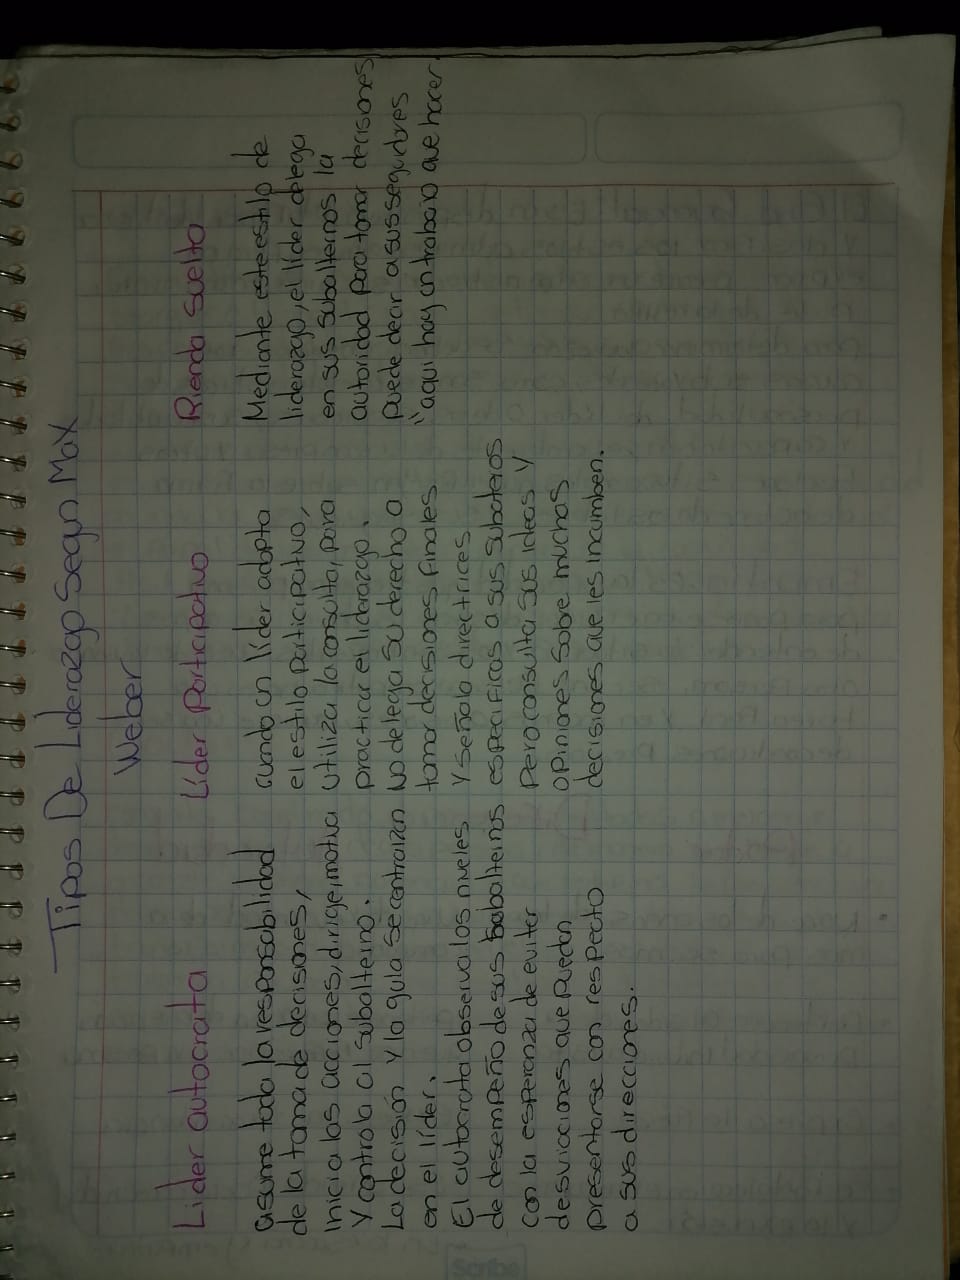 Tipos De Liderazgo Segun Max
Weber
Lider autocrata
asume toda la responsabilidad
de la toma de decisiones,
inicia las acciones, dirige, motiva
y controla al subalterno.
La decisión y la guía se centraizan
en el líder.
El autocrata observa los niveles
de desempeño de sus subalternos
con la esperanza de evitar
desviaciones que puedan
presentarse con respecto
a sus direcciones.
Líder Participativo
cuando un líder adopta
el estilo participativo,
utiliza la consulta, para
practicar el liderazgo.
No delega su derecho a
tomar decisiones finales
y señala directrices
especificas a sus subalteros
pero consulta sus ideas y
opiniones sobre muchas
decisiones que les incumben.
Rienda suelta
Mediante este estilo de
liderazgo, el líder delega
en sus subalternos la
autoridad para tomar decisiones
puede decir a sus seguidores
"aqui hay un trabajo que hacer.
Scribe